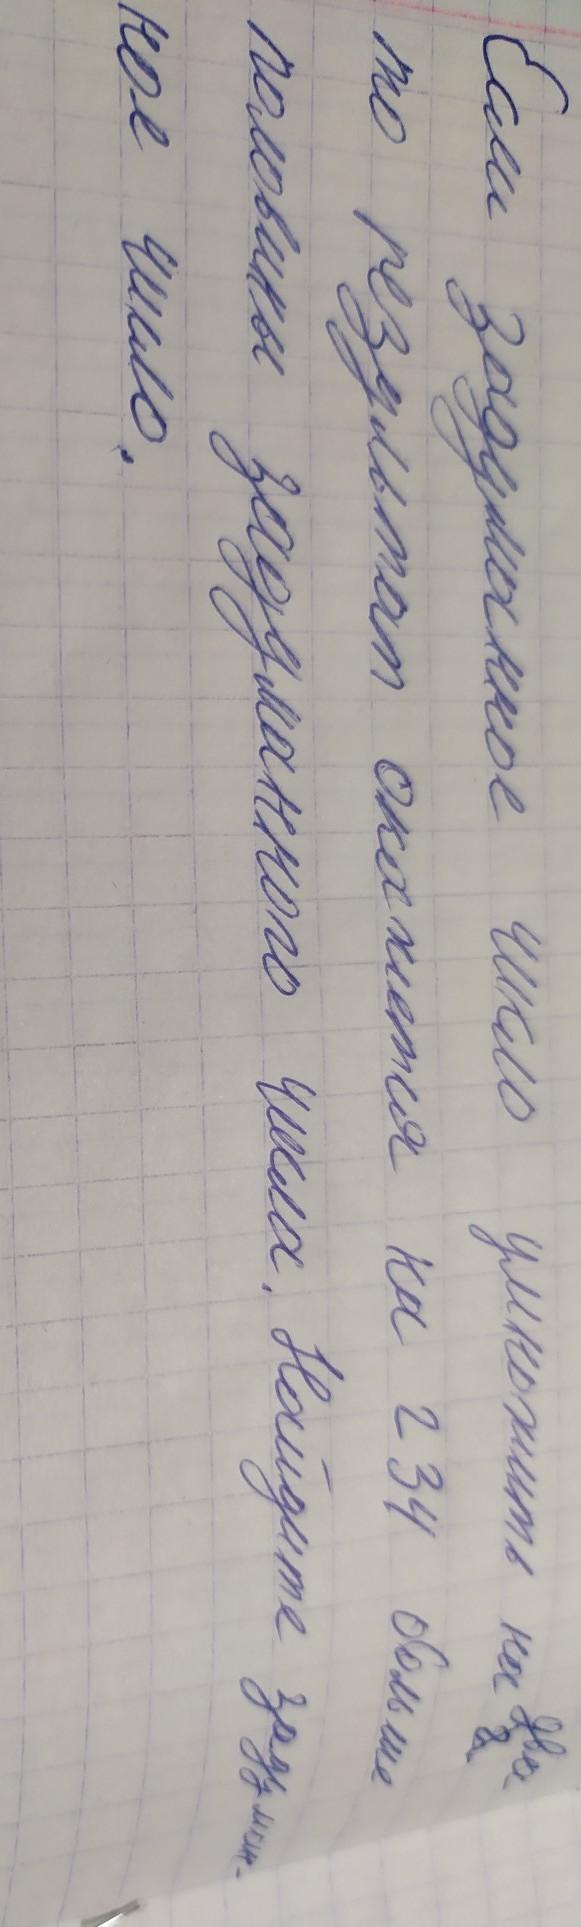 Если задуманное число умножить на два
то результат окажется на 234 больше
половины задуманного числа. Найдите задуман-
ное число.